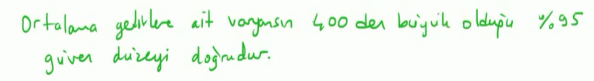 Ortalama gelirlere ait varyansın 400 den büyük olduğu %95
güven düzeyi doğrudur.